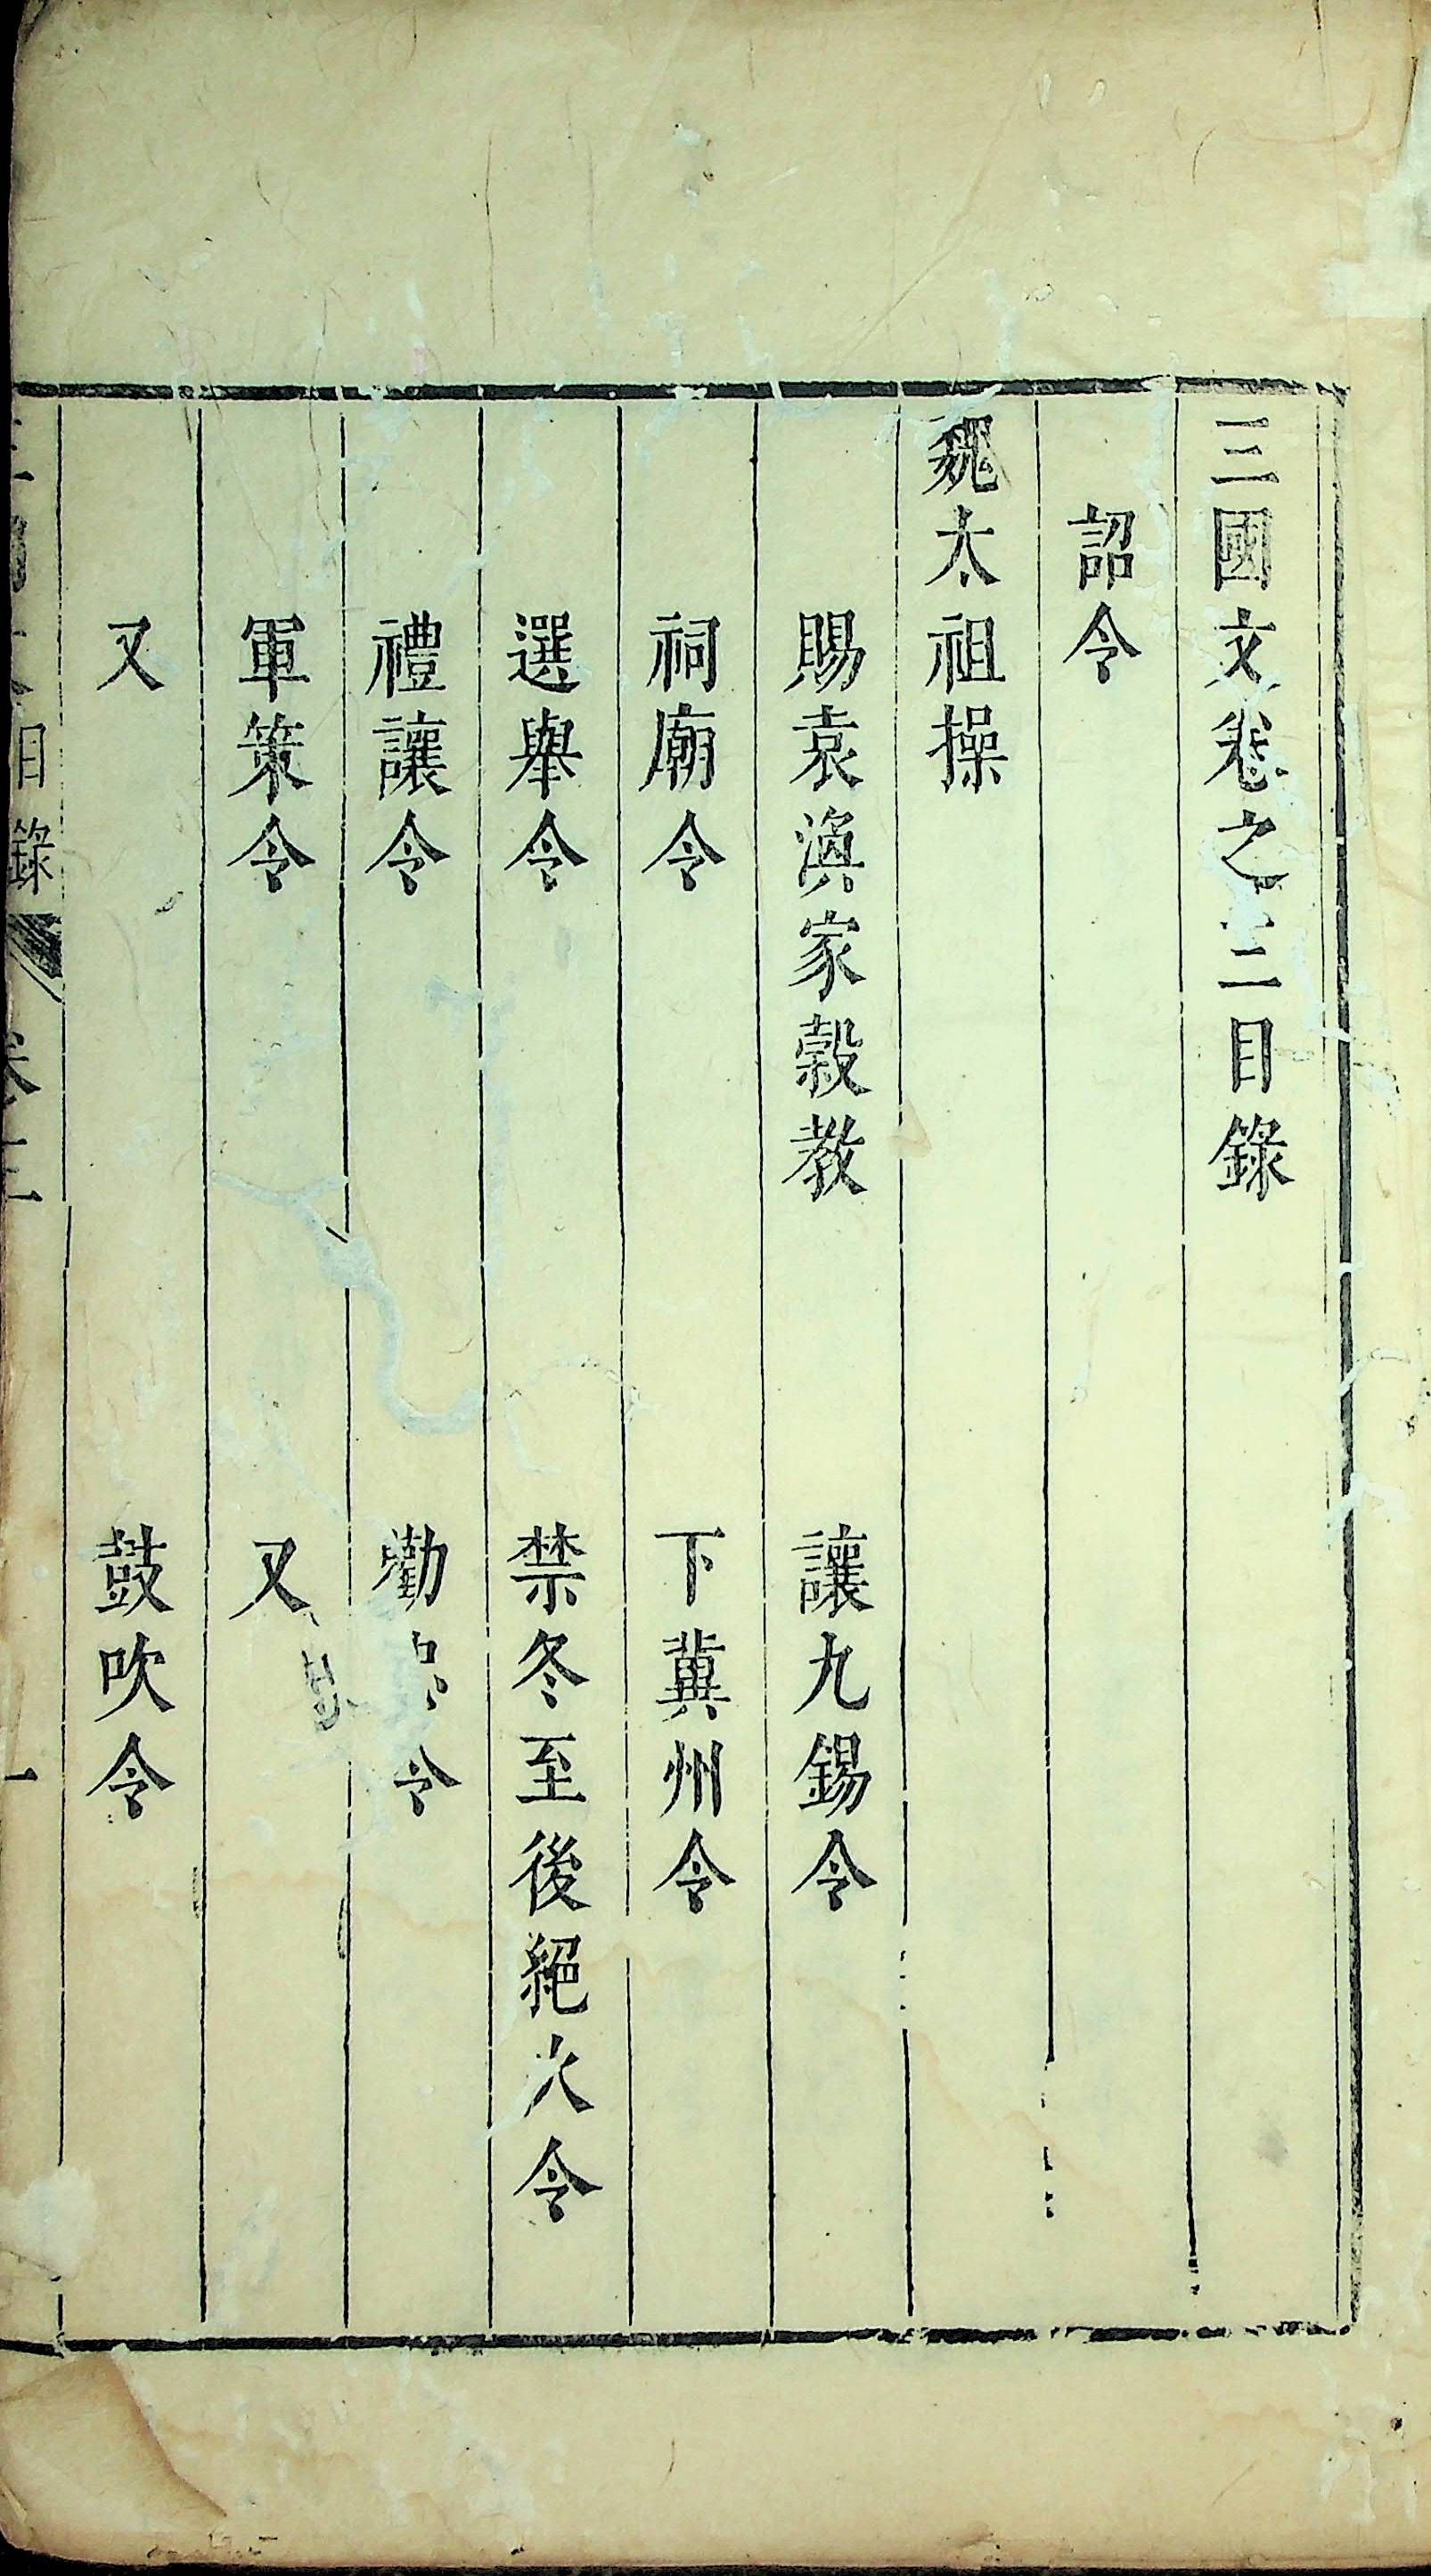 三國文卷之三目錄
詔令
魏太祖操
賜袁渙家穀教　讓九錫令
祠廟令　下冀州令
選舉令　禁冬至後絕火令
禮讓令　勸 令
軍策令　又
又　鼓吹令
目錄　卷三　一